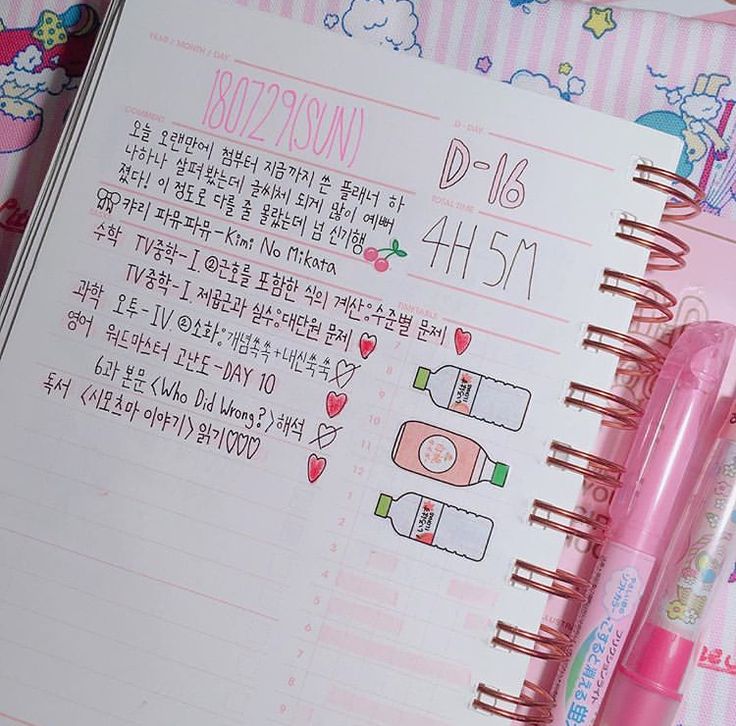 YEAR / MONTH / DAY
180729(SUN)
COMMENT
오늘 오랜만에 첨부터 지금까지 쓴 플래너 하
나하나 살펴봤는데 글씨체 되게 많이 예뻐
졌다! 이 정도로 다를 줄 몰랐는데 넘 신기행
캬리 파뮤파뮤-Kimi No Mikata
D-DAY
D-16
TOTAL TIME
4H 5M
수학 TV중학-I ②근호를 포함한 식의 계산。수준별 문제
TV중학-I. 제곱근과 실수。대단원 문제
과학 오투-IV ②소화。개념쏙쏙+내신쑥쑥
영어 워드마스터 고난도-DAY 10
6과 본문 <Who Did Wrong?> 해석
독서 <시모츠마 이야기> 읽기♡♡♡
TIMETABLE
7
8
9
10
11
12
1
2
3
4
5
6
7
8
9
こすると消える蛍
フリクションライト
ソフトカラー